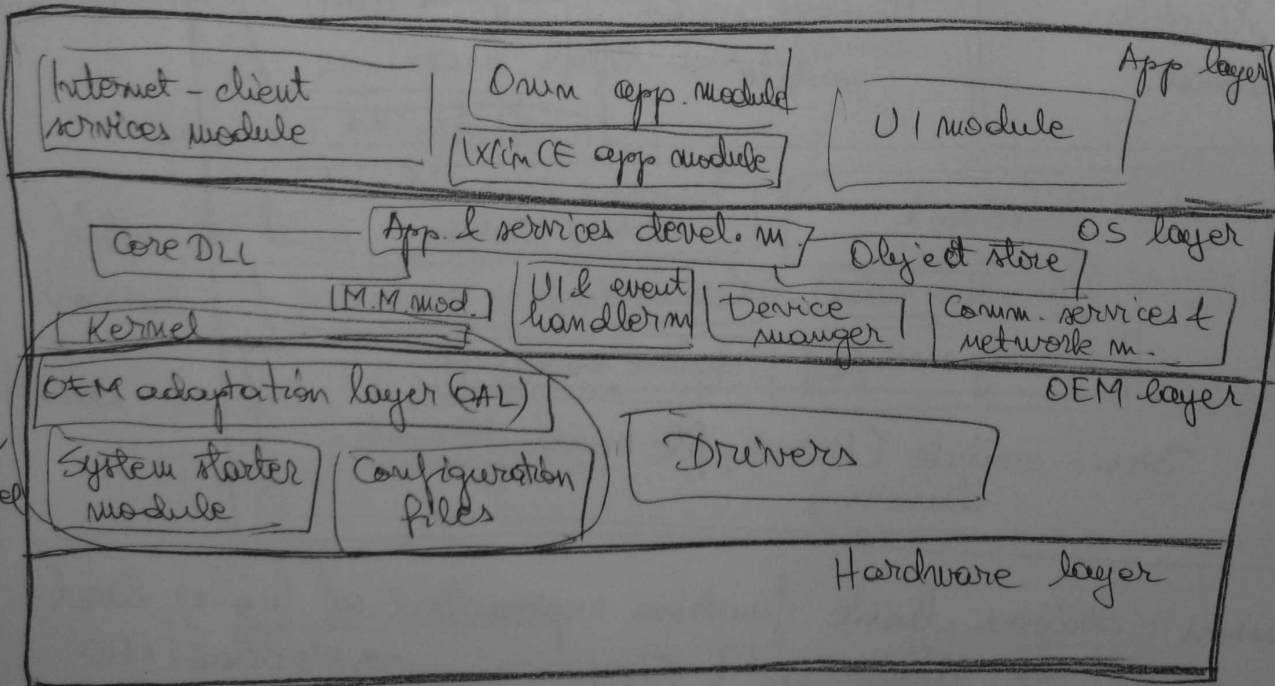 App layer
Internet-client
services module
Own app. module
WinCE app module
UI module
OS layer
Core DLL
App. & services devel. m.
Object store
M.M. mod.
UI & event
handler m
Device
manger
Comm. services &
network m.
Kernel
OEM layer
OEM adaptation layer (OAL)
System starter
module
Configuration
files
Drivers
Hardware layer